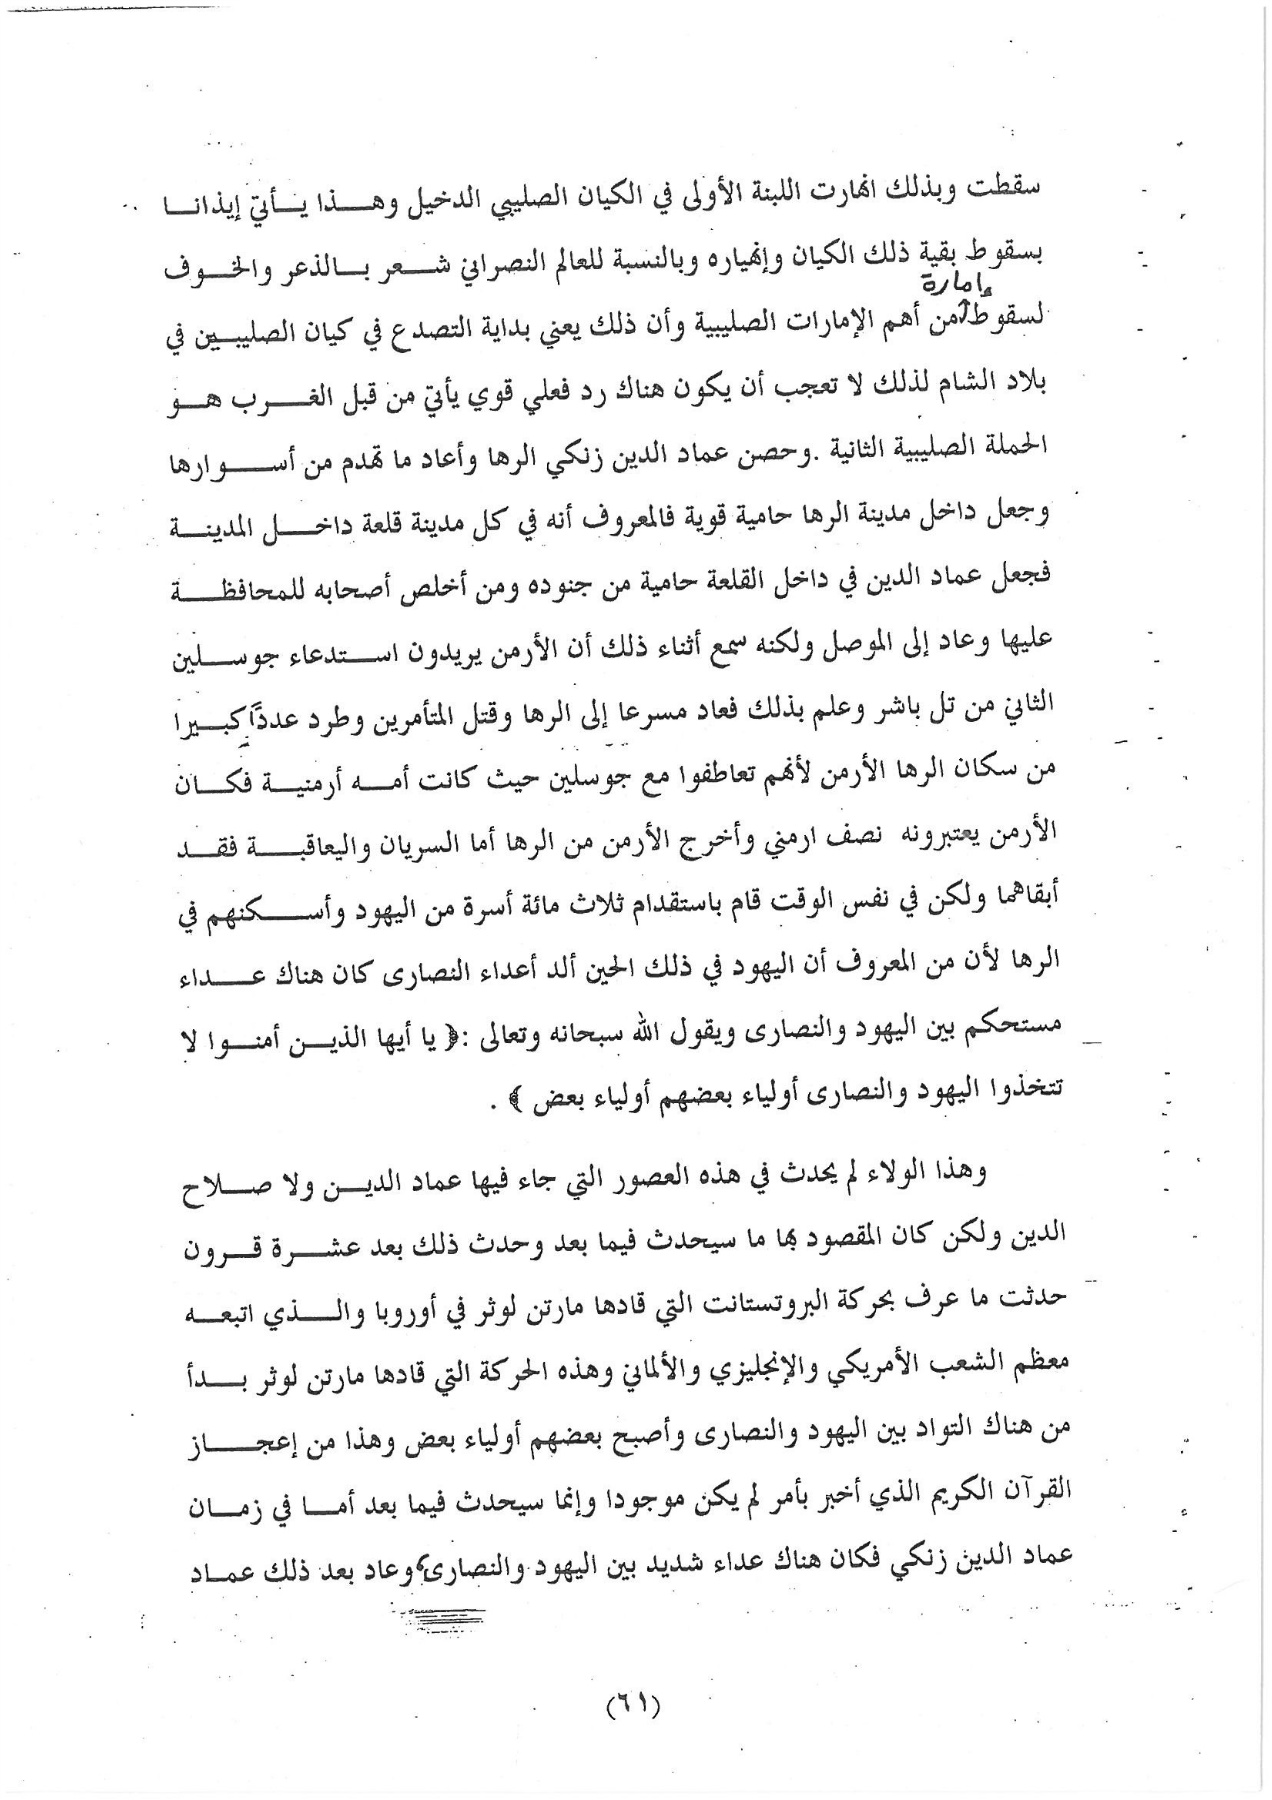 سقطت وبذلك انهارت اللبنة الأولى في الكيان الصليبي الدخيل وهذا يأتي إيذانا
بسقوط بقية ذلك الكيان وإنهياره وبالنسبة للعالم النصراني شعر بالذعر والخوف
إمارة
لسقوط من أهم الإمارات الصليبية وأن ذلك يعني بداية التصدع في كيان الصليبين في
بلاد الشام لذلك لا تعجب أن يكون هناك رد فعلي قوي يأتي من قبل الغرب هو
الحملة الصليبية الثانية .وحصن عماد الدين زنكي الرها وأعاد ما تهدم من أسوارها
وجعل داخل مدينة الرها حامية قوية فالمعروف أنه في كل مدينة قلعة داخل المدينة
فجعل عماد الدين في داخل القلعة حامية من جنوده ومن أخلص أصحابه للمحافظة
عليها وعاد إلى الموصل ولكنه سمع أثناء ذلك أن الأرمن يريدون استدعاء جوسلين
الثاني من تل باشر وعلم بذلك فعاد مسرعا إلى الرها وقتل المتأمرين وطرد عدداً كبيرا
من سكان الرها الأرمن لأنهم تعاطفوا مع جوسلين حيث كانت أمه أرمنية فكان
الأرمن يعتبرونه نصف ارمني وأخرج الأرمن من الرها أما السريان واليعاقبة فقد
أبقاهما ولكن في نفس الوقت قام باستقدام ثلاث مائة أسرة من اليهود وأسكنهم في
الرها لأن من المعروف أن اليهود في ذلك الحين ألد أعداء النصارى كان هناك عداء
مستحكم بين اليهود والنصارى ويقول الله سبحانه وتعالى :﴿ يا أيها الذين أمنوا لا
تتخذوا اليهود والنصارى أولياء بعضهم أولياء بعض ﴾ .
وهذا الولاء لم يحدث في هذه العصور التي جاء فيها عماد الدين ولا صلاح
الدين ولكن كان المقصود بها ما سيحدث فيما بعد وحدث ذلك بعد عشرة قرون
حدثت ما عرف بحركة البروتستانت التي قادها مارتن لوثر في أوروبا والذي اتبعه
معظم الشعب الأمريكي والإنجليزي والألماني وهذه الحركة التي قادها مارتن لوثر بدأ
من هناك التواد بين اليهود والنصارى وأصبح بعضهم أولياء بعض وهذا من إعجاز
القرآن الكريم الذي أخبر بأمر لم يكن موجودا وإنما سيحدث فيما بعد أما في زمان
عماد الدين زنكي فكان هناك عداء شديد بين اليهود والنصارى، وعاد بعد ذلك عماد
(٦١)